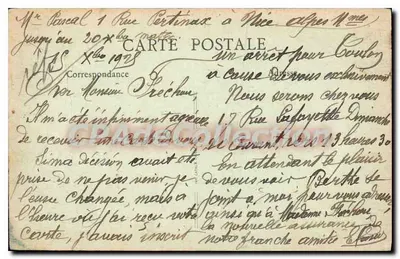 Mr Pascal 1 Rue Pertinax à Nice Alpes Mmes
jusqu'au 20 Xbre
CARTE POSTALE
Correspondance
15 Xbre 1925
Mon Monsieur Fréchon
Il m'a été infiniment agréable
de recevoir
Si ma décision avait été
prise de ne pas venir je
l'eusse changée, mais à
l'heure où j'ai reçu votre
carte, j'avais inscrit
un arrêt pour Toulon
à cause de vous exclusivement
Nous serons chez vous
17 Rue Lafayette Dimanche
13 heures 30
En attendant le plaisir
de vous voir Berthe se
joint à moi pour vous adresser
ainsi qu'à Madame Fréchon
la nouvelle assurance de
notre franche amitié